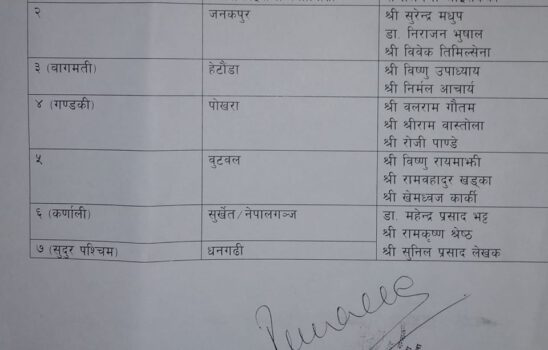 २ जनकपुर श्री सुरेन्द्र मधुप
डा. निराजन भुषाल
श्री विवेक तिमिल्सेना
३ (वागमती) हेटौडा श्री विष्णु उपाध्याय
श्री निर्मल आचार्य
४ (गण्डकी) पोखरा श्री वलराम गौतम
श्री श्रीराम वास्तोला
श्री रोजी पाण्डे
५ वुटवल श्री विष्णु रायमाझी
श्री रामवहादुर खड्का
श्री खेमध्वज कार्की
६ (कर्णाली) सुर्खेत/नेपालगञ्ज डा. महेन्द्र प्रसाद भट्ट
श्री रामकृष्ण श्रेष्ठ
७ (सुदुर पश्चिम) धनगढी श्री सुनिल प्रसाद लेखक